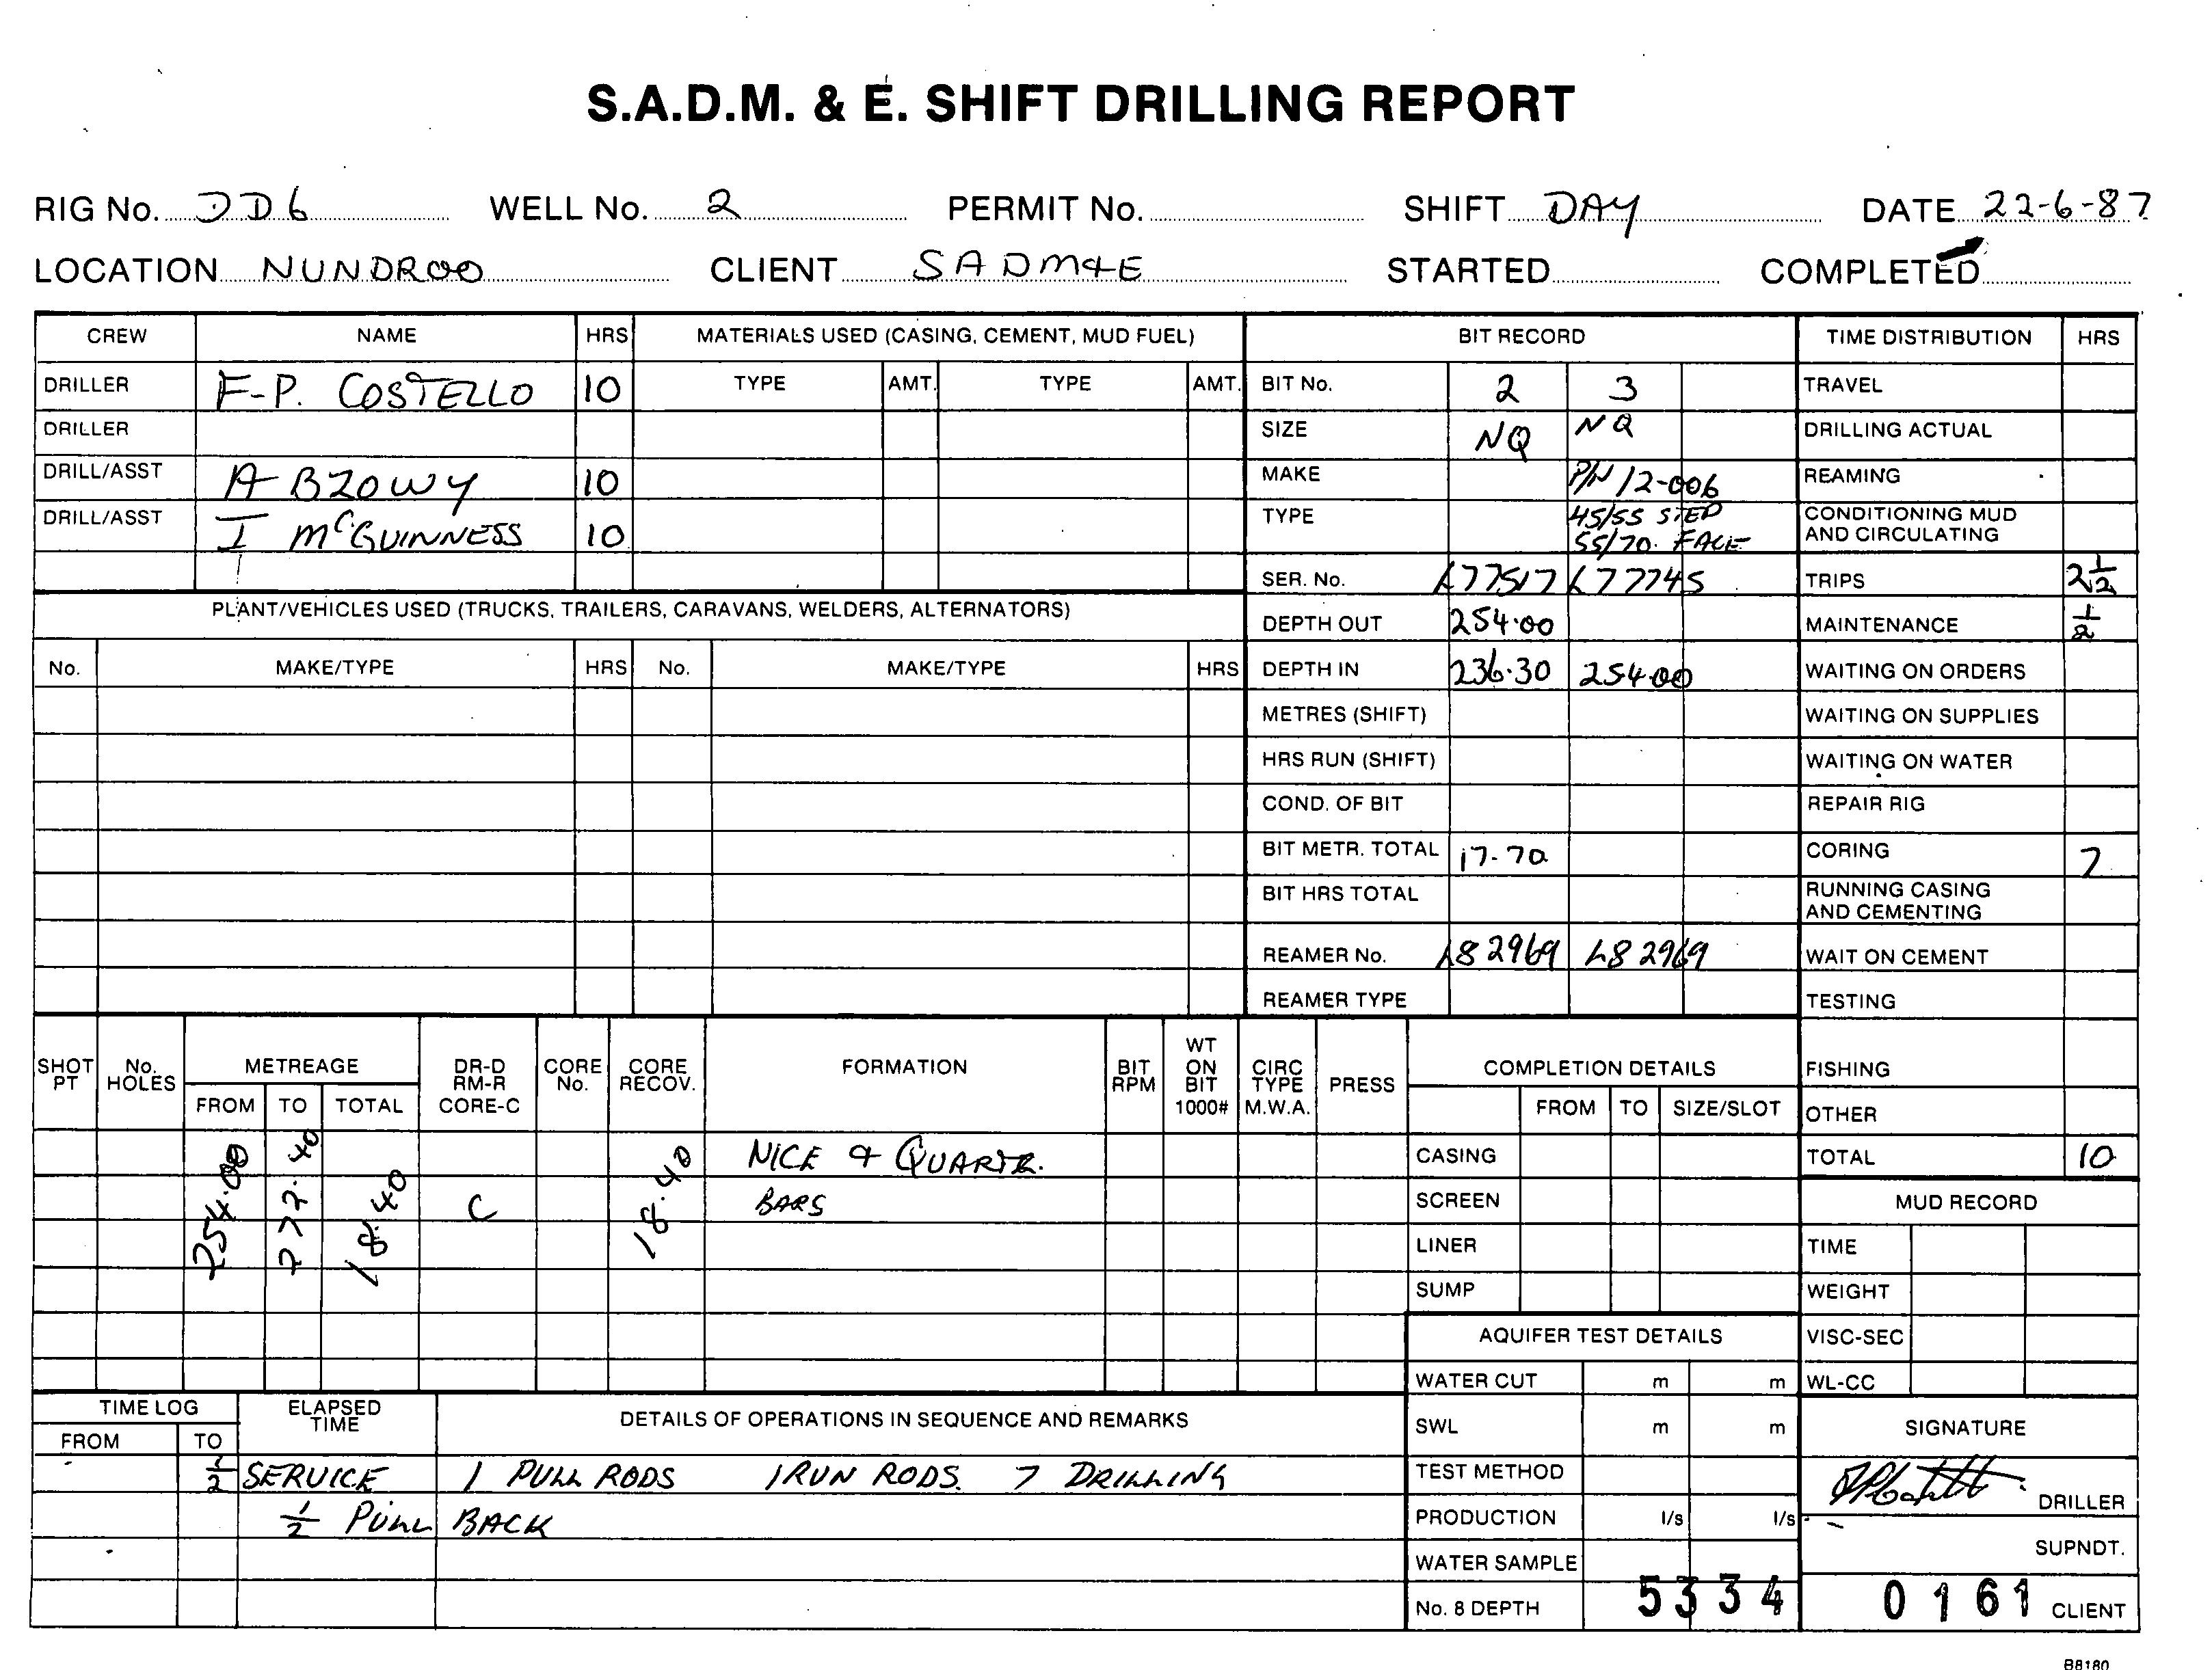 S.A.D.M. & E. SHIFT DRILLING REPORT
RIG No. DD6 WELL No. 2 PERMIT No. SHIFT DAY DATE 22-6-87
LOCATION NUNDROO CLIENT SADM&E STARTED COMPLETED
CREW NAME HRS MATERIALS USED (CASING, CEMENT, MUD FUEL) BIT RECORD TIME DISTRIBUTION HRS
DRILLER F-P. COSTELLO 10 TYPE AMT. TYPE AMT. BIT No. 2 3 TRAVEL
DRILLER SIZE NQ NQ DRILLING ACTUAL
DRILL/ASST A BZOWY 10 MAKE P/N 12-006 REAMING
DRILL/ASST I McGUINNESS 10 TYPE 45/55 STEP CONDITIONING MUD
55/70. FACE AND CIRCULATING
SER. No. L77517 L77745 TRIPS 2½
PLANT/VEHICLES USED (TRUCKS, TRAILERS, CARAVANS, WELDERS, ALTERNATORS) DEPTH OUT 254.00 MAINTENANCE ½
No. MAKE/TYPE HRS No. MAKE/TYPE HRS DEPTH IN 236.30 254.00 WAITING ON ORDERS
METRES (SHIFT) WAITING ON SUPPLIES
HRS RUN (SHIFT) WAITING ON WATER
COND. OF BIT REPAIR RIG
BIT METR. TOTAL 17-70 CORING 7
BIT HRS TOTAL RUNNING CASING
AND CEMENTING
REAMER No. L82969 L82969 WAIT ON CEMENT
REAMER TYPE TESTING
SHOT PT No. HOLES METREAGE DR-D RM-R CORE-C CORE No. CORE RECOV. FORMATION BIT RPM WT ON BIT 1000# CIRC TYPE M.W.A. PRESS COMPLETION DETAILS FISHING
FROM TO TOTAL FROM TO SIZE/SLOT OTHER
254.00 272.40 18.40 C 18.40 NICE & QUARTZ. CASING TOTAL 10
BARS SCREEN MUD RECORD
LINER TIME
SUMP WEIGHT
AQUIFER TEST DETAILS VISC-SEC
WATER CUT m m WL-CC
TIME LOG ELAPSED TIME DETAILS OF OPERATIONS IN SEQUENCE AND REMARKS SWL m m SIGNATURE
FROM TO
½ SERVICE 1 PULL RODS 1 RUN RODS. 7 DRILLING TEST METHOD DRILLER
½ PULL BACK PRODUCTION l/s l/s
WATER SAMPLE SUPNDT.
No. 8 DEPTH 5334 0161 CLIENT
B8180